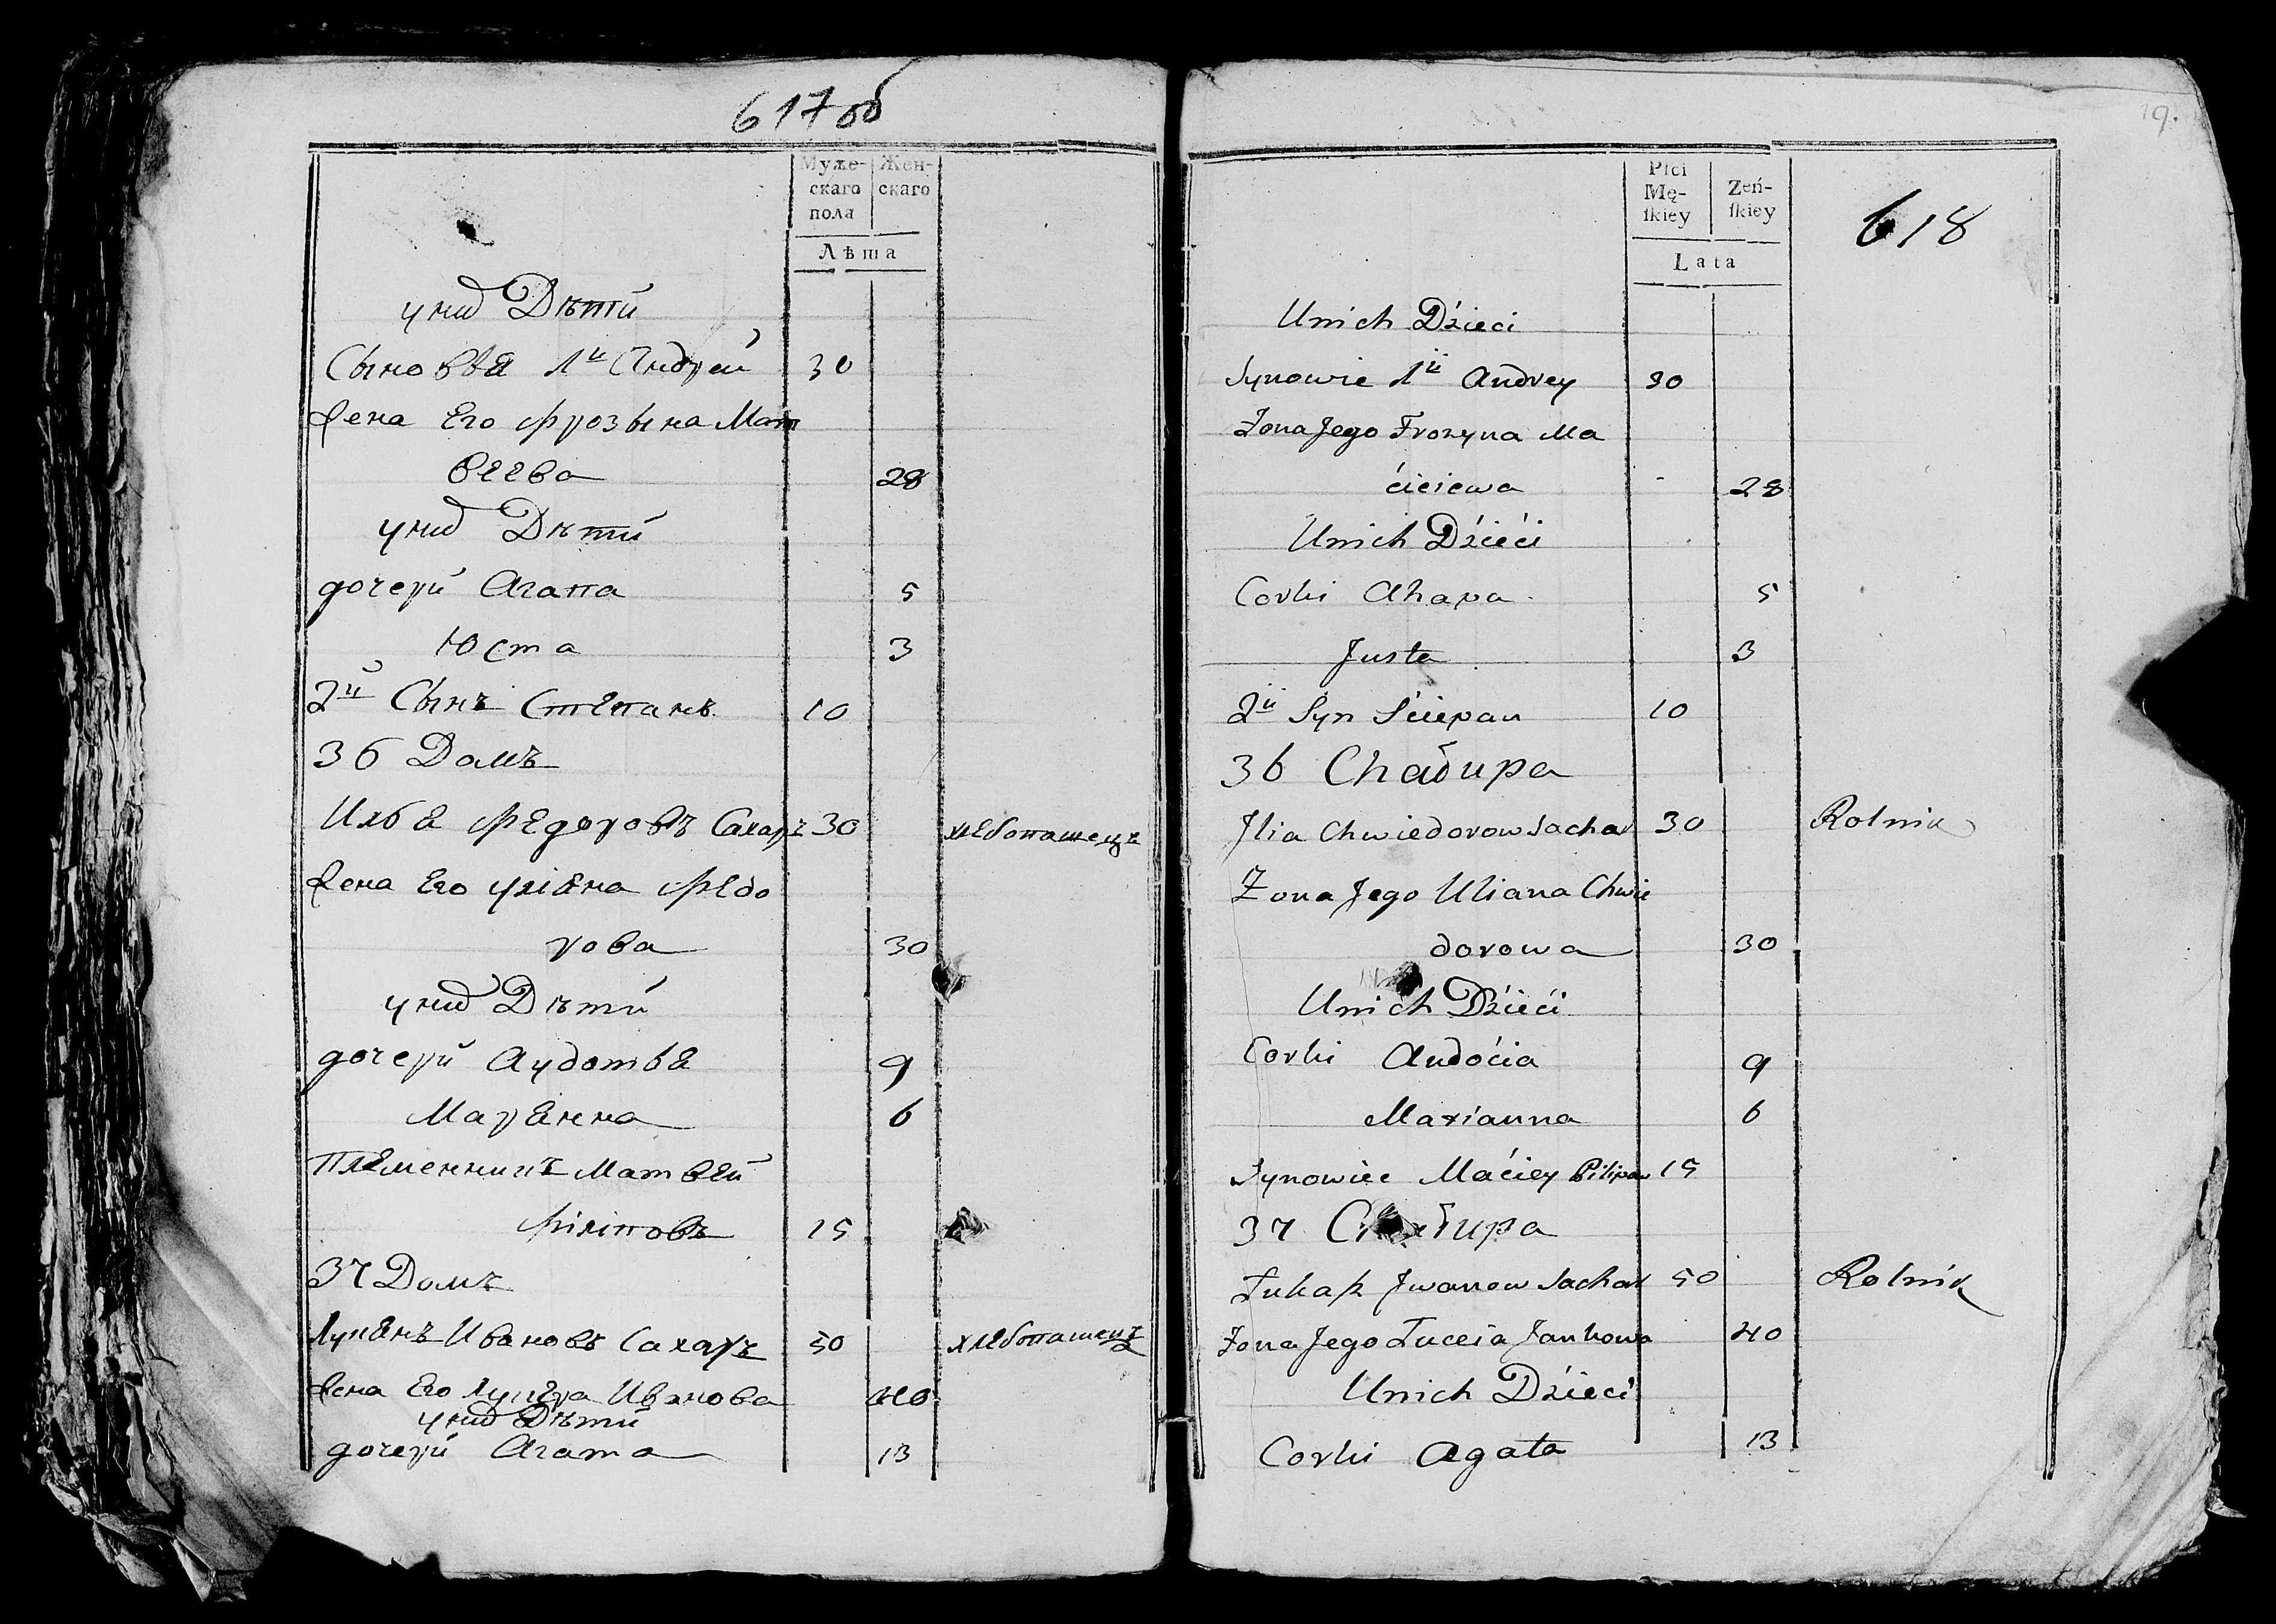 617об
Муже-
скаго
пола
Жен-
скаго
Лѣта
у них Дѣти
Сыновья 1й Андрей 30
Жена Его Фрозына Мат
веева 28
у них Дѣти
дочери Агапа 5
Юста 3
2й Сынъ Степанъ 10
36 Домъ
Илья Федоровъ Сахаръ 30 хлебопашецъ
Жена Его Уліяна Федо
рова 30
у них Дѣти
дочери Аудотья 9
Марянна 6
Племенникъ Матвей
Філіповъ 15
37 Домъ
Лукянъ Ивановъ Сахаръ 50 хлебопашецъ
Жена Его Луцея Иванова 40
у них Дѣти
дочери Агата 13
19.
Płci
Mę-
ſkiey
Zeń-
ſkiey
618
Lata
Unich Dźieci
Synowie 1ii Andrey 30
Zona Jego Frozyna Ma
ćieiewa 28
Unich Dźiećі
Corki Ahapa 5
Justa 3
2ii Syn Śćiepan 10
36 Chałupa
Jlia Chwiedorow Sachar 30 Rolnik
Zona Jego Uliana Chwie
dorowa 30
Unich Dźieći
Corki Audoćia 9
Marianna 6
Synowiec Maćiey Pilipow 15
37 Chałupa
Łukaſz Jwanow Sachar 50 Rolnik
Zona Jego Łuceia Jankowa 40
Unich Dźieci
Corki Agata 13